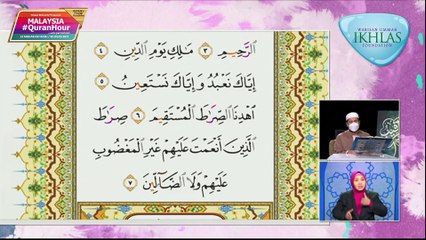 MALAYSIA
#QuranHour
WARISAN UMMAH
IKHLAS
FOUNDATION
الرَّحِيمِ ٣ مَٰلِكِ يَوْمِ الدِّينِ ٤
إِيَّاكَ نَعْبُدُ وَإِيَّاكَ نَسْتَعِينُ ٥
اهْدِنَا الصِّرَٰطَ الْمُسْتَقِيمَ ٦ صِرَٰطَ
الَّذِينَ أَنْعَمْتَ عَلَيْهِمْ غَيْرِ الْمَغْضُوبِ
عَلَيْهِمْ وَلَا الضَّآلِّينَ ٧